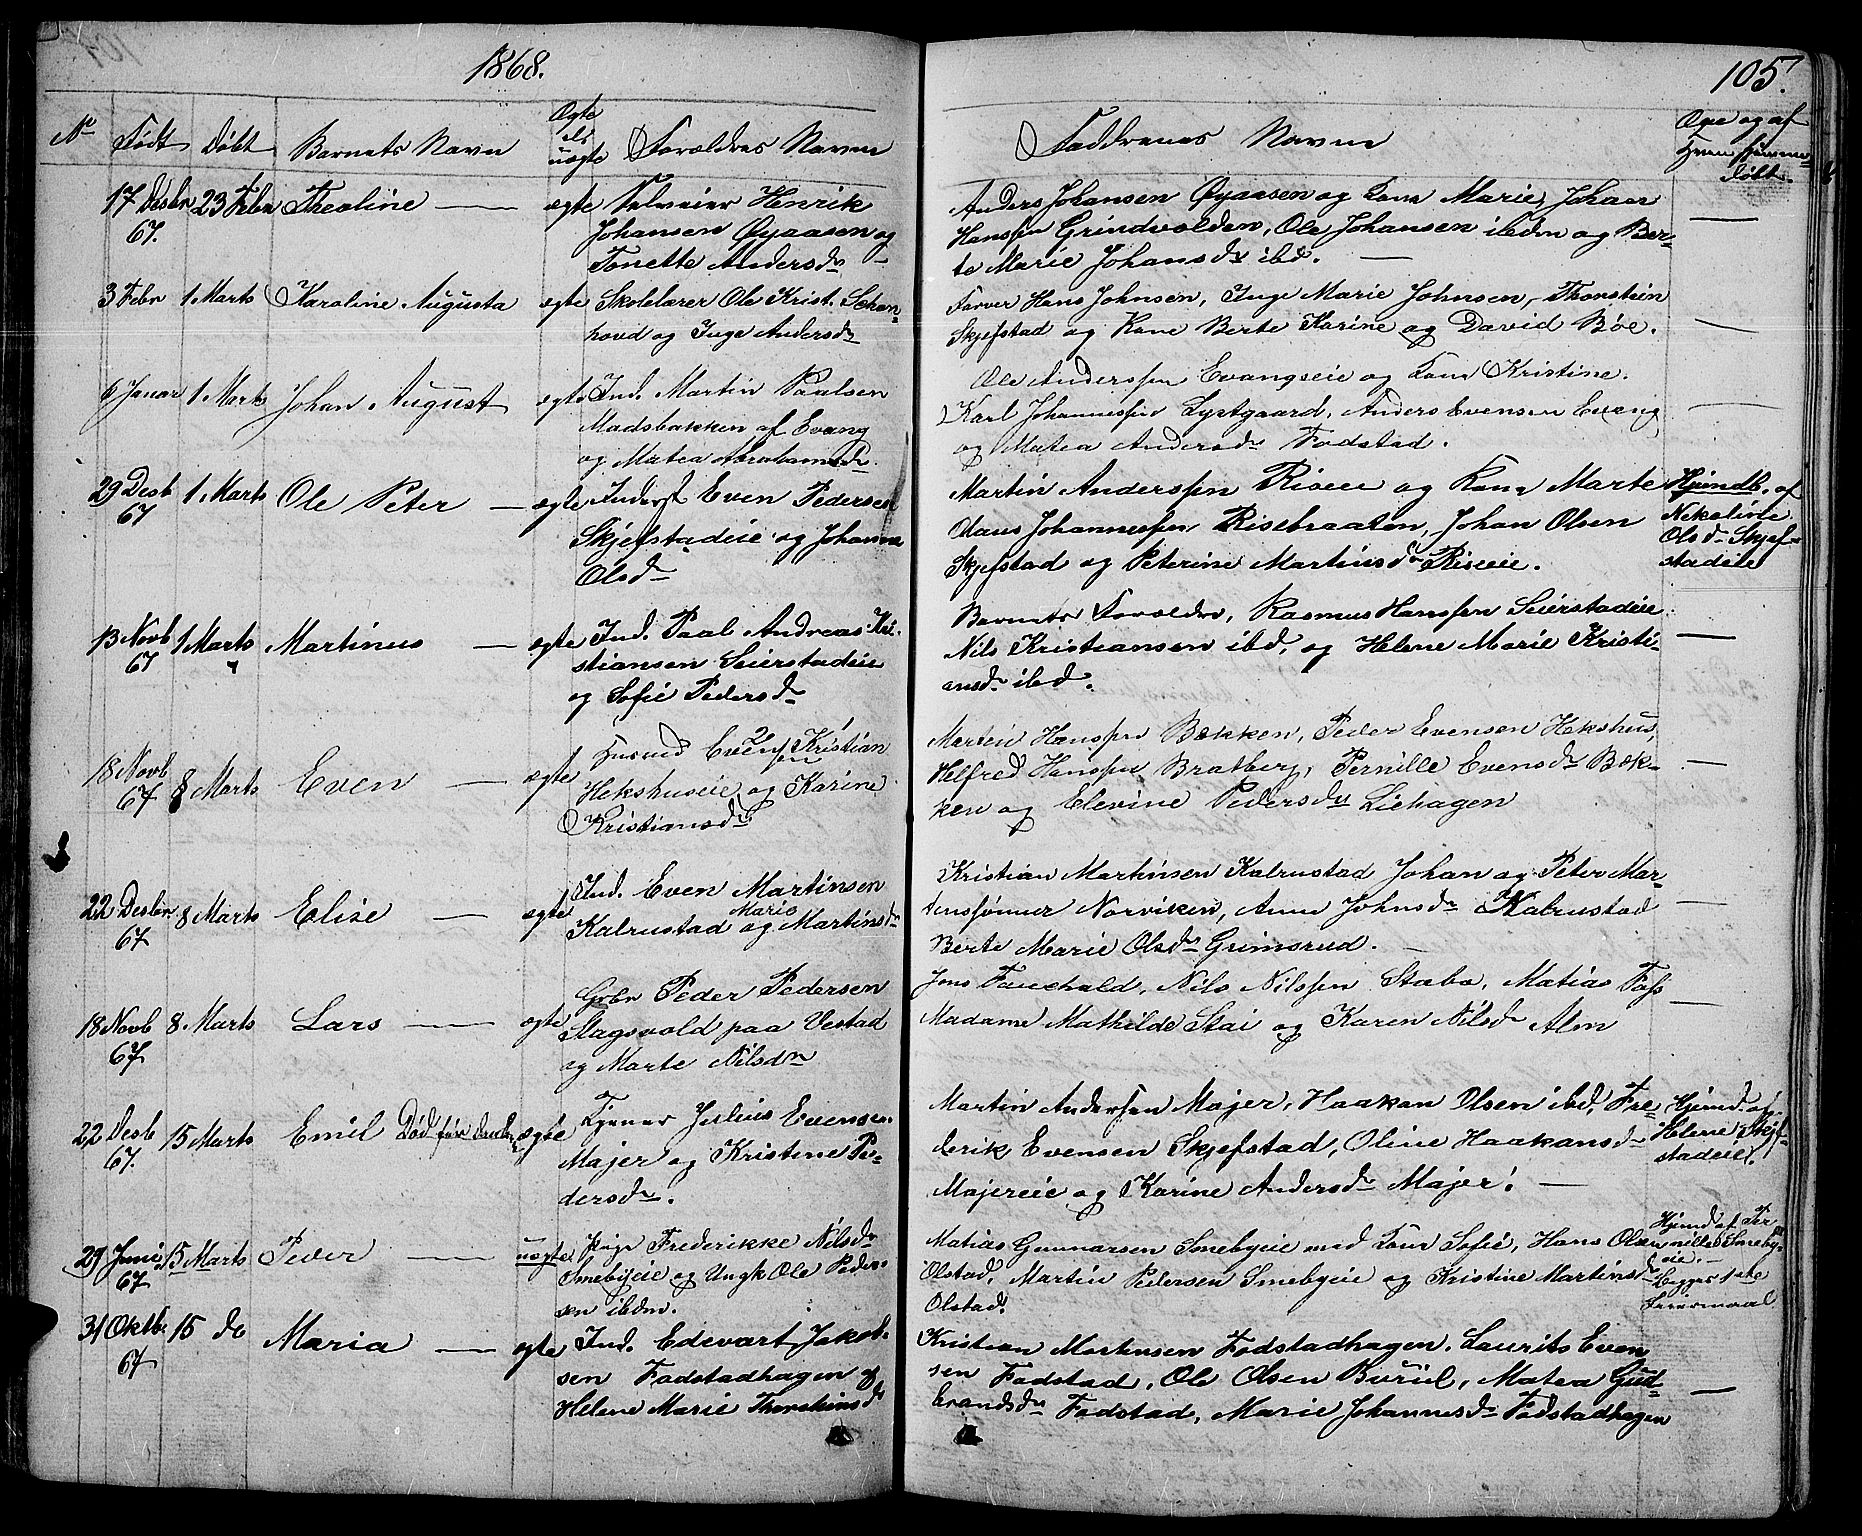 1868.
105.
No
Født
Døbt
Barnets Navn
Ægte
el.
uægte
Forældres Navne
Faddrenes Navne
Hjemme-
døbt
17 Desbr 23 Febr Theoline — ægte Henrik
67.
Johansen Øyaasen og
Tonette Andersdr
Anders Johansen Øyaasen og Kone Marie, Johan
Hanssen Grindvolden, Ole Johansen ibdm og Ber-
te Marie Johansdr ibd. —
3 Febr 1 Marts Karoline Augusta ægte Skolelærer Ole Krist. Schon-
hovd og Inge Andersdr
Farver Hans Johnsen, Inge Marie Johnsen, Thorstein
Skjefstad og Kone Berte Karine og David Bøe.
6 Januar 1 Marts Johan August ægte Ind. Martin Paalsen
Madsbakken af Evang
og Matea Abrahamsdr.
Ole Anderssen Evangseie og Kone Kristine.
Karl Johannessen Lystgaard, Anders Evensen Evang
og Matea Andersdr Fodstad.
29 Desb 1 Marts Ole Peter — ægte Inderst Even Pedersen
67
Skjefstadeie og Johanne
Olsdr
Martin Anderssen Riseie og Kone Marte
Olaus Johannessen Risebraaten, Johan Olsen
Skjefstad og Peterine Martinsdr Riseie.
Hjemdb. af
Nekoline
Olsdr Skjef-
stadeie
13 Novb 1 Marts Martinus — ægte Ind. Paal Andreas Kri-
67
stiansen Seierstadeie
og Sofie Pedersdr
Barnets Forældre, Rasmus Hanssen Seierstadeie
Nils Kristiansen ibd, og Helene Marie Kristi-
ansdr ibd.
18 Novb 8 Marts Even — ægte Husmd Evensen Kristian
67
Hekshuseie og Karine
Kristiansdr
Martin Hanssen Bækken, Peder Evensen Hekshus,
Helfred Hanssen Bratberg, Pernille Evensdr Bæk-
ken og Elevine Pedersdr Liehagen
22 Desbr 8 Marts Elise — ægte Ind. Even Martinsen
67
Kalrustad og Marie Martinsdr
Kristian Martinsen Kalrustad Johan og Peter Mar-
tinssønner Norviken, Anne Johnsdr Kalrustad
Berte Marie Olsdr Grimsrud. —
18 Novb 8 Marts Lars — ægte Grbr Peder Pedersen
67
Slagsvold paa Vestad
og Marte Nilsdr
Jens Fauchald, Nils Nilssen Stabo, Matias Foss
Madame Mathilde Stai og Karen Nilsdr Alm
22 Desb 15 Marts Emil Død før Daaben ægte Tjener Julius Evensen
67.
Majer og Kristine Pe-
dersdr.
Martin Andersen Majer, Haakan Olsen ibd, Fre-
derik Evensen Skjefstad, Oline Haakansdr
Majereie og Karine Andersdr Majer. —
Hjemd. af
Helene Skjef-
stadeie.
29 Juni 15 Marts Peder — uægte Pige Frederikke Nilsdr
67
Smebyeie og Ungk Ole Peder-
sen ibdm.
Matias Gunnarsen Smebyeie med Kone Sofie, Hans Olsen
Olstad, Martin Pedersen Smebyeie og Kristine Martinsdr
Olstad.
Hjemd af Per-
nille Smeby-
eie. —
Begges 1ste
Leiermaal
31 Oktb. 15 do Maria — ægte Ind. Edevart Jakob-
67
sen Fodstadhagen og
Helene Marie Thorstensdr
Kristian Mortensen Fodstadhagen, Laurits Even
sen Fodstad, Ole Olsen Buruel, Matea Gud-
brandsdr Fodstad, Marie Johannesdr Fodstadhagen